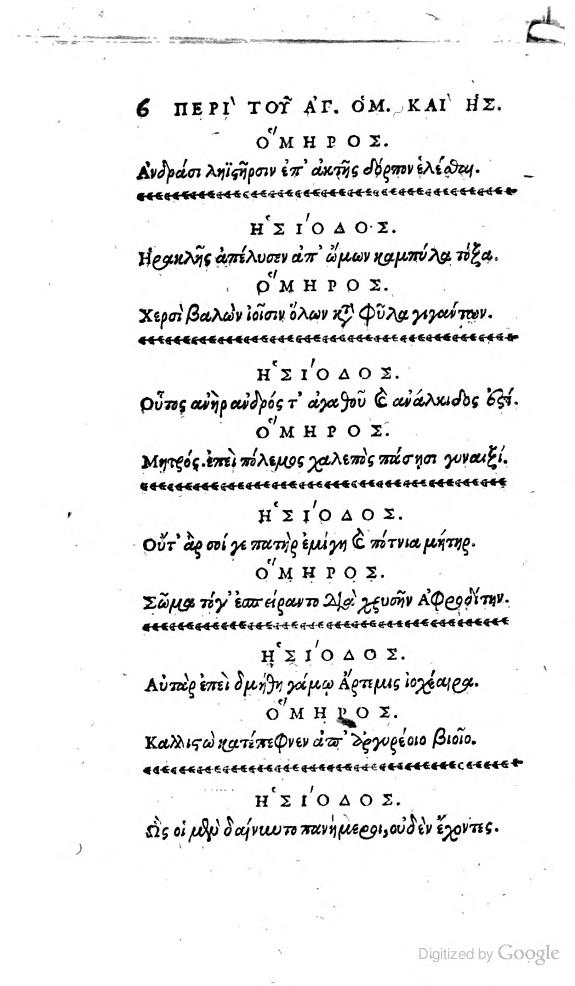 6 ΠΕΡΙ ΤΟΥ͂ ἈΓ. ὉΜ. ΚΑΙ ἩΣ.
ὍΜΗΡΟΣ.
Ανδράσι ληϊστῆρσιν ἐπ' ἀκτῆς δόρπον ἑλέσθαι.
ἩΣΙΌΔΟΣ.
Ηρακλῆς ἀπέλυσεν ἀπ' ὤμων καμπύλα τόξα.
ὍΜΗΡΟΣ.
Χερσὶ βαλὼν ἰοῖσιν ὅλων κατὰ φῦλα γιγάντων.
ἩΣΙΌΔΟΣ.
Οὗτος ανὴρ ανδρός τ' ἀγαθοῦ καὶ ἀνάλκιδος ἐστί.
ὍΜΗΡΟΣ.
Μητρός. ἐπεὶ πόλεμος χαλεπὸς πάσῃσι γυναιξί.
ἩΣΙΌΔΟΣ.
Οὔτ' ἂρ σοί γε πατὴρ ἐμίγη καὶ πότνια μήτηρ.
ὍΜΗΡΟΣ.
Σῶμα τόγ' ἐσπείραντο διὰ χρυσῆν Αφροδίτην.
ἩΣΙΌΔΟΣ.
Αὐτὰρ ἐπεὶ δμήθη γάμῳ Ἄρτεμις ἰοχέαιρα.
ὍΜΗΡΟΣ.
Καλλιστὼ κατέπεφνεν ἀπ' ἀργυρέοιο βιοῖο.
ἩΣΙΌΔΟΣ.
Ὣς οἱ μὲν δαίνυντο πανήμεροι, οὐδὲν ἔχοντες.
Digitized by Google